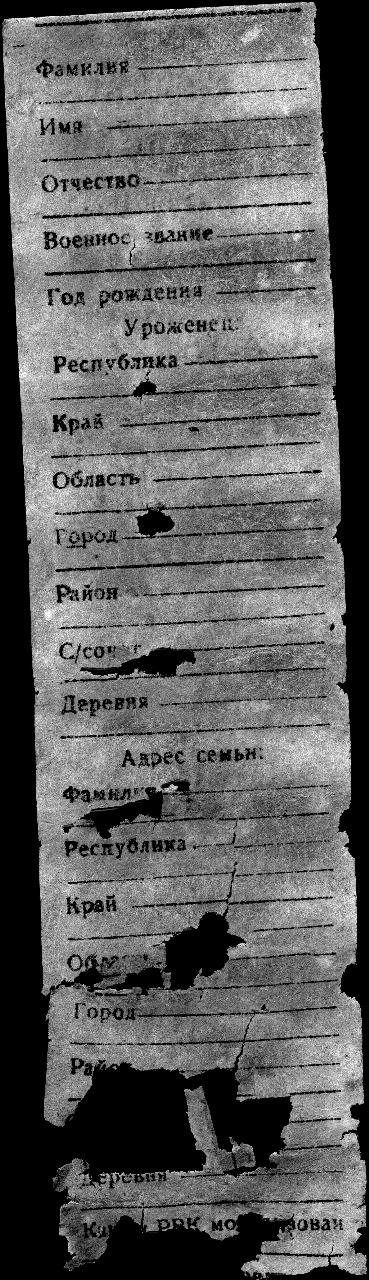 Фамилия
Имя
Отчество
Военное звание
Год рождения
Уроженец:
Республика
Край
Область
Город
Район
С/совет
Деревня
Адрес семьи:
Фамилия
Республика
Край
Город
Деревня
РВК